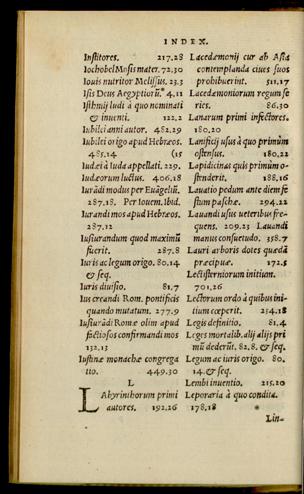 INDEX.
Institores. 217.28
Iochobel Mosis mater. 72.30
Iouis nutritor Melissus. 23.3
Isis Deus Aegyptiorū. 4.11
Isthmij ludi à quo nominati
& inuenti. 122.2
Iubilei anni autor. 482.29
Iubilei origo apud Hebræos.
485.14 (15
Iudæi à Iuda appellati. 229.
Iudæorum luctus. 406.18
Iurādi modus per Euāgeliū.
287.18. Per Iouem. ibid.
Iurandi mos apud Hebræos.
287.12
Iusiurandum quod maximū
fuerit. 287.8
Iuris ac legum origo. 80.14
& seq.
Iuris diuisio. 81.7
Ius creandi Rom. pontificis
quando mutatum. 277.9
Iusiurādi Romæ olim apud
factiosos confirmandi mos
132.13
Iustinæ monachæ congrega
tio. 449.30
L
LAbyrinthorum primi
autores. 192.26
Lacedæmonij cur ab Asia
contemplanda ciues suos
prohibuerint. 511.17
Lacedæmoniorum regum se
ries. 86.30
Lanarum primi infectores.
180.20
Lanificij usus à quo primùm
ostensus. 180.22
Lapidicinas quis primùm o-
stenderit. 188.16
Lauatio pedum ante diem fe
stum paschæ. 294.22
Lauandi usus ueteribus fre-
quens. 209.23 Lauandi
manus consuetudo. 358.7
Lauri arboris dotes quædā
præcipuæ. 172.5
Lectisterniorum initium.
701.26
Lectorum ordo à quibus ini-
tium cœperit. 254.18
Legis definitio. 81.4
Leges mortalib. alij alijs pri
mū dederūt. 82.8. & seq.
Legum ac iuris origo. 80.
14. & seq.
Lembi inuentio. 215.20
Leporaria à quo condita.
178.18
Lin-